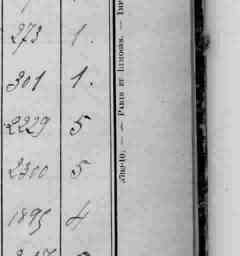 273 1.
301 1.
2229 5
2300 5
1895 4
— PARIS ET LIMOGES. —